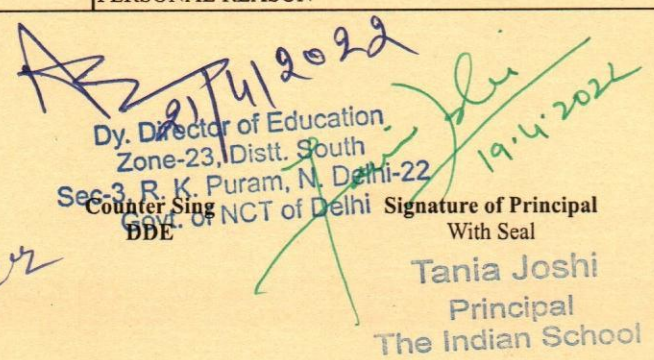 PERSONAL REASON
21/4/2022
Dy. Director of Education
Zone-23, Distt. South
Sec-3, R. K. Puram, N. Delhi-22
Govt. of NCT of Delhi
Counter Sing
DDE
19.4.2022
Signature of Principal
With Seal
Tania Joshi
Principal
The Indian School